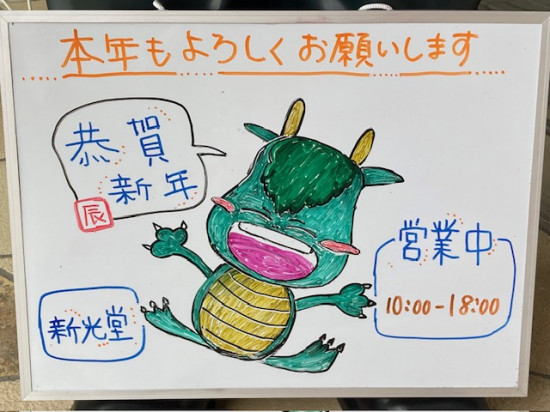 本年もよろしくお願いします
恭賀
新年
辰
営業中
10:00-18:00
新光堂